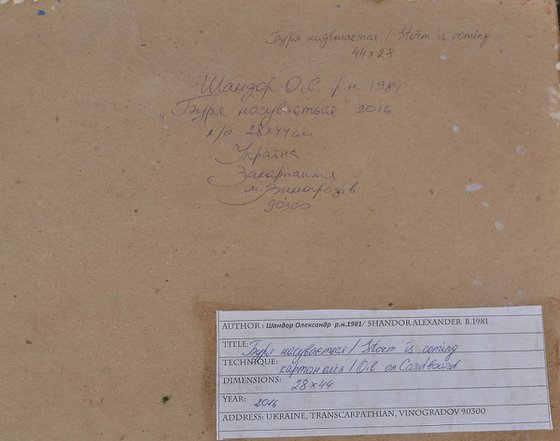 Буря надвигается / Storm is coming
44×28
Шандор О.С. р.н. 1981
„Буря насувається" 2016
к/о 28×44см
Україна
Закарпаття
м. Виноградів
90300
AUTHOR : Шандор Олександр р.н.1981/ SHANDOR ALEXANDER B.1981
TITLE: Буря насувається / Storm is coming
TECHNIQUE: картон олія / Oil on CardBoard
DIMENSIONS: 28×44
YEAR: 2016
ADDRESS: UKRAINE, TRANSCARPATHIAN, VINOGRADOV 90300